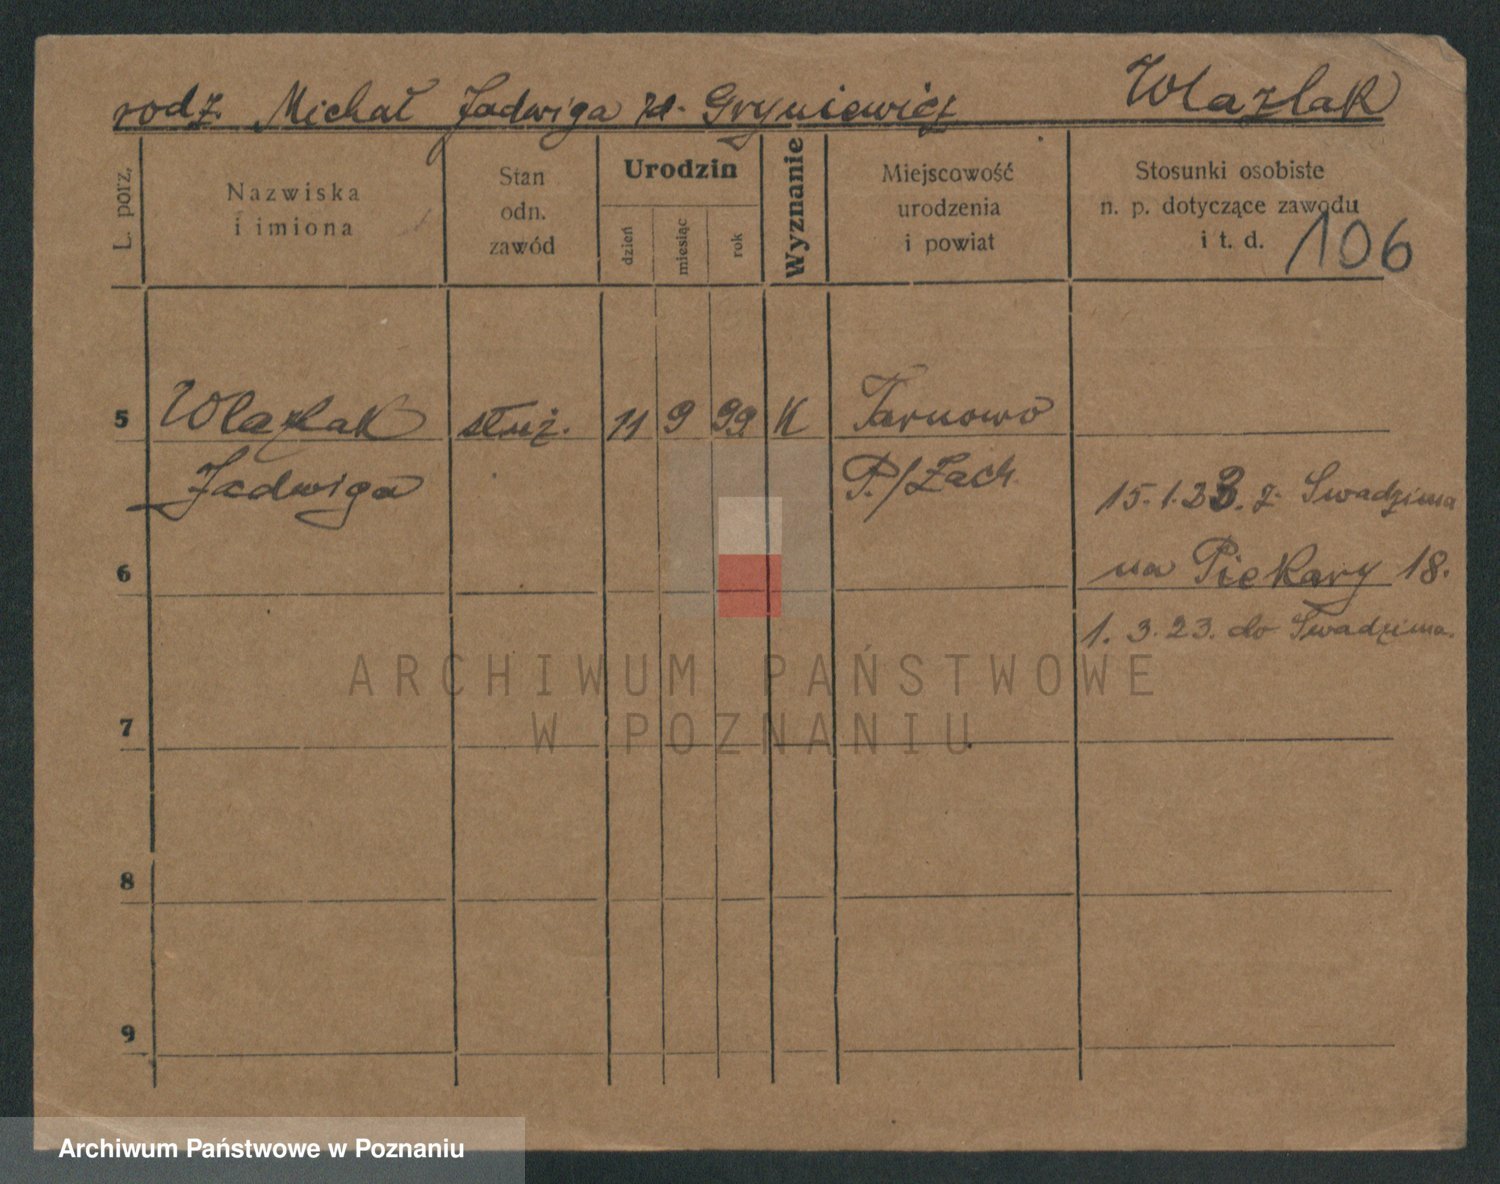 Wlazlak
rodz. Michał Jadwiga zd. Gryniewicz
L. porz.
Nazwiska
i imiona
Stan
odn.
zawód
Urodzin
dzień
miesiąc
rok
Wyznanie
Miejscowość
urodzenia
i powiat
Stosunki osobiste
n. p. dotyczące zawodu
i t. d.
106
5 Wlazlak służ. 11 9 99 K Tarnowo
Jadwiga P./Zach.
15.1.23. z Swadzima
6 na Piekary 18.
1.3.23. do Swadzima.
7
8
9
ARCHIWUM PAŃSTWOWE
W POZNANIU
Archiwum Państwowe w Poznaniu